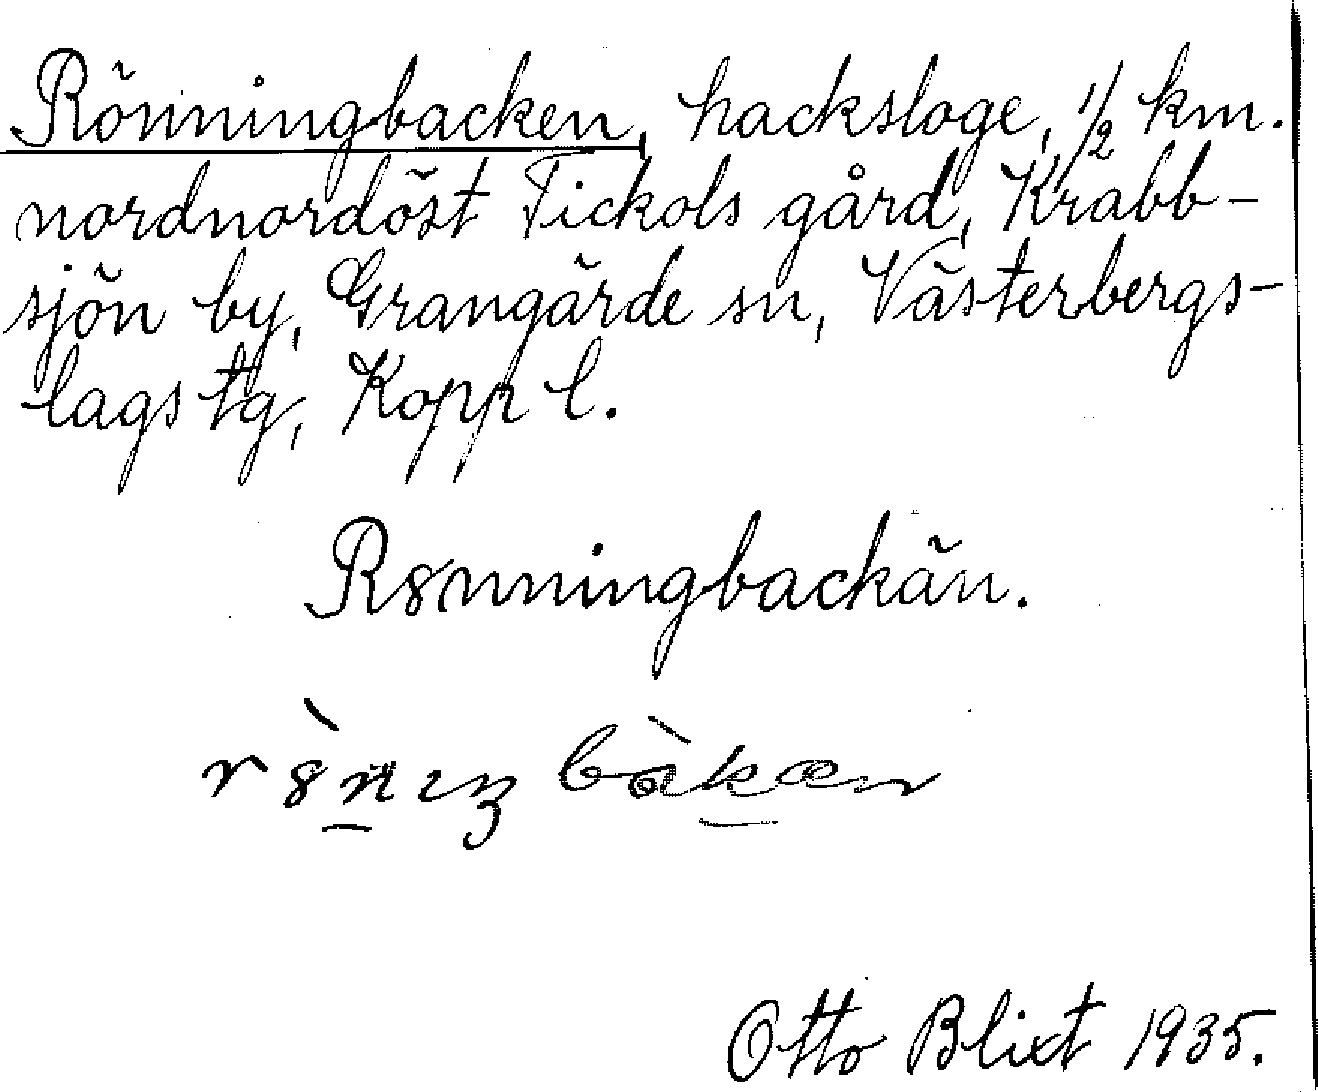 Rönningbacken, hacksloge, 1/2 km.
nordnordöst Tickols gård, Krabb-
sjön by, Grangärde sn, Västerbergs-
lags tg, Kopp l.
Rȣnningbackän.
rȣ̀nıŋ bàkæn
Otto Blixt 1935.